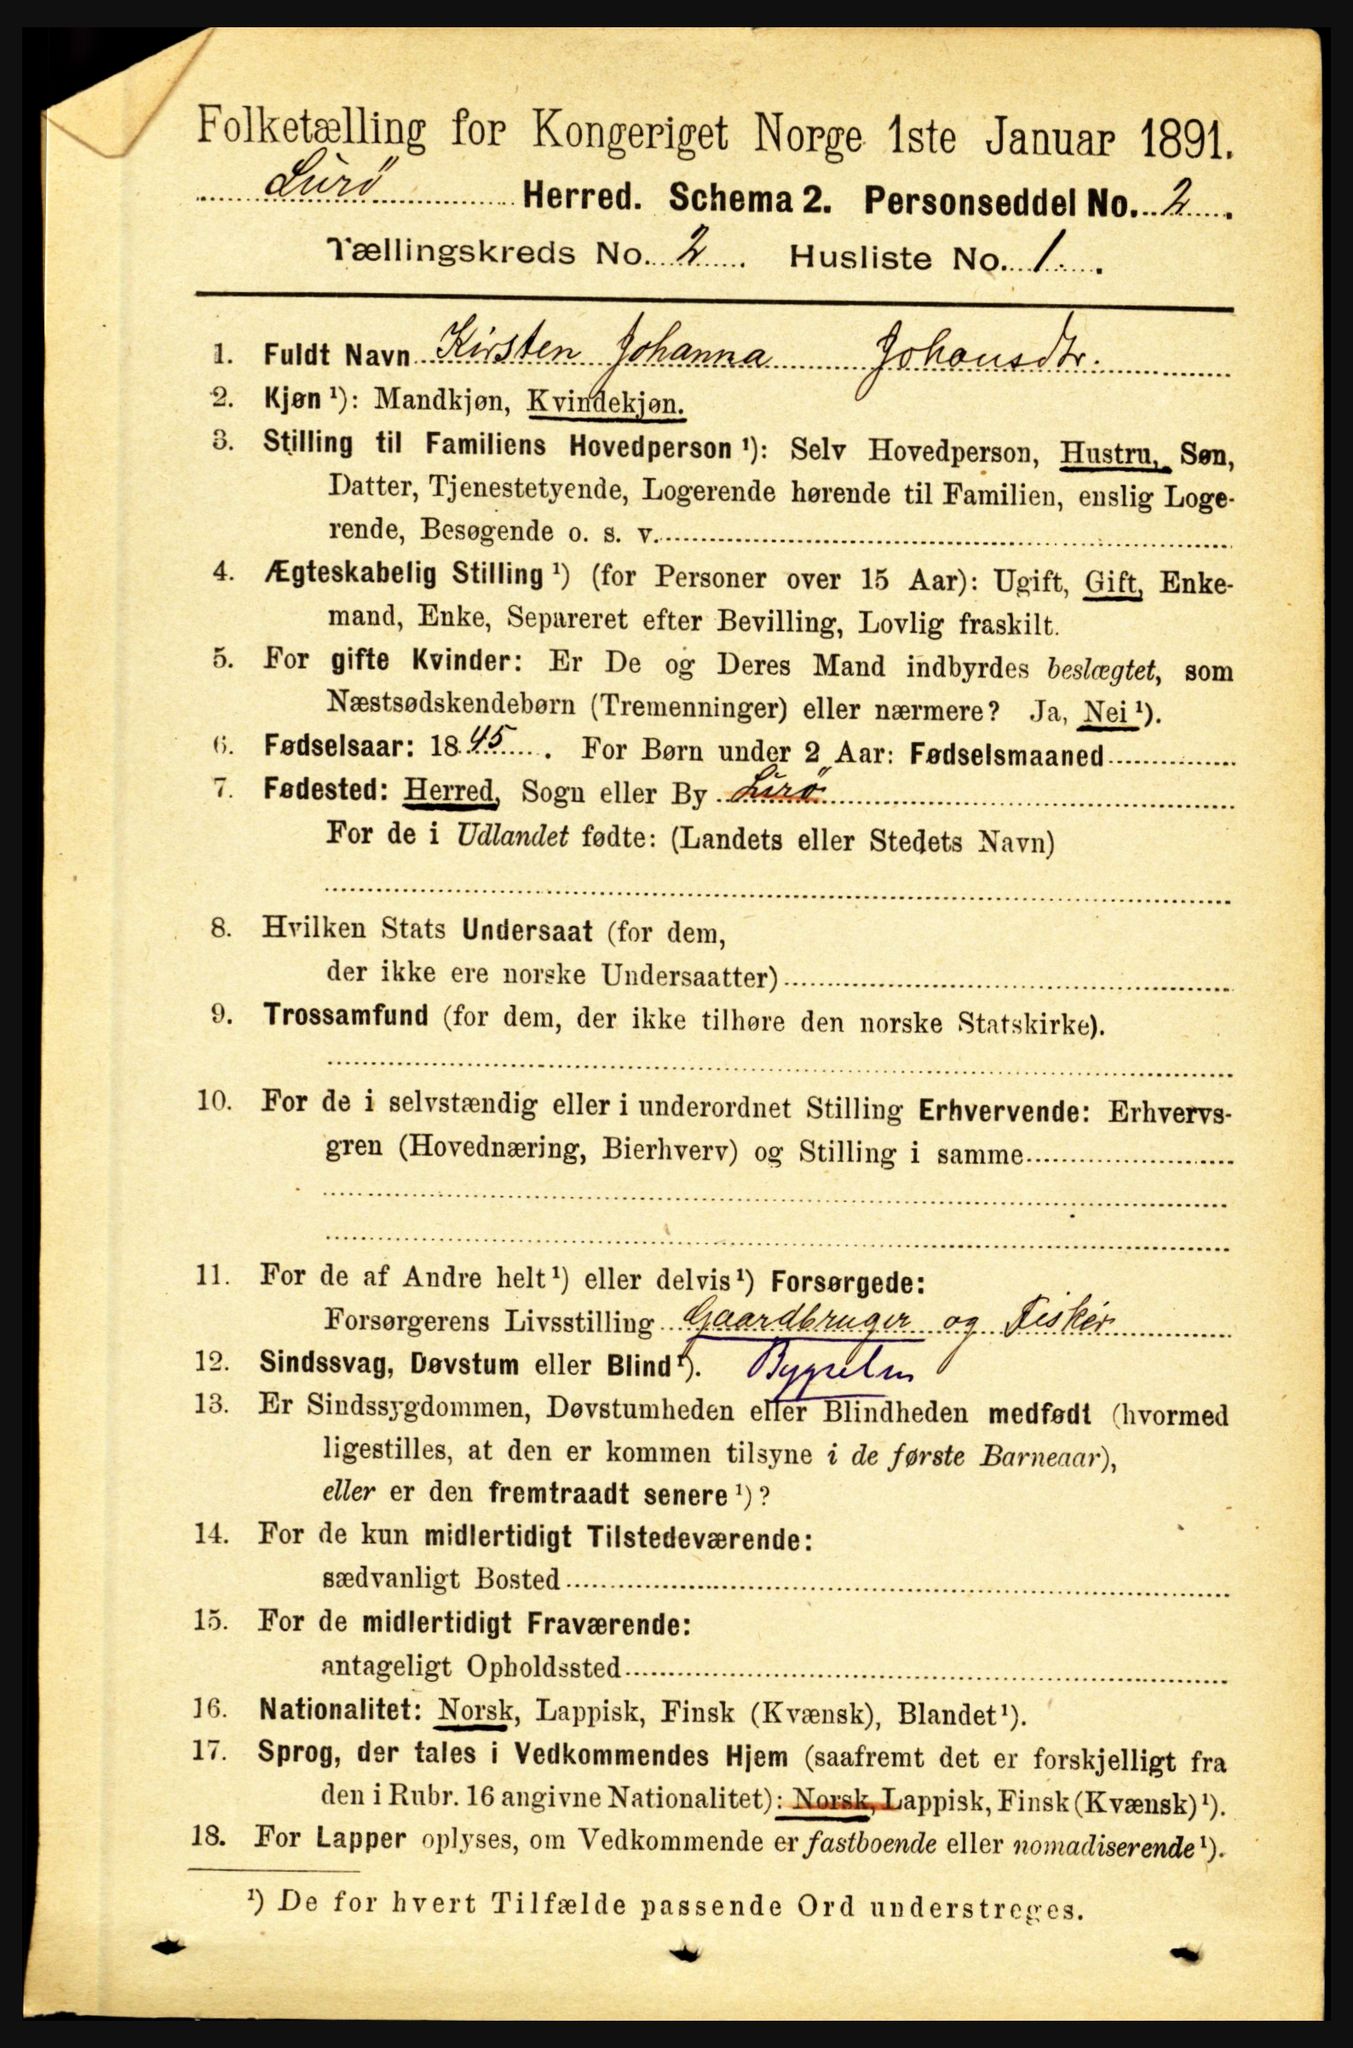 Folketælling for Kongeriget Norge 1ste Januar 1891.
Lurø Herred. Schema 2. Personseddel No. 2.
Tællingskreds No. 2. Husliste No. 1.
1. Fuldt Navn Kirsten Johanna Johansdtr.
2. Kjøn ¹): Mandkjøn, Kvindekjøn.
3. Stilling til Familiens Hovedperson ¹): Selv Hovedperson, Hustru, Søn,
Datter, Tjenestetyende, Logerende hørende til Familien, enslig Loge-
rende, Besøgende o. s. v.
4. Ægteskabelig Stilling ¹) (for Personer over 15 Aar): Ugift, Gift, Enke-
mand, Enke, Separeret efter Bevilling, Lovlig fraskilt.
5. For gifte Kvinder: Er De og Deres Mand indbyrdes beslægtet, som
Næstsødskendebørn (Tremenninger) eller nærmere? Ja, Nei ¹).
6. Fødselsaar: 1845. For Børn under 2 Aar: Fødselsmaaned
7. Fødested: Herred, Sogn eller By Lurø
For de i Udlandet fødte: (Landets eller Stedets Navn)
8. Hvilken Stats Undersaat (for dem,
der ikke ere norske Undersaatter)
9. Trossamfund (for dem, der ikke tilhøre den norske Statskirke).
10. For de i selvstændig eller i underordnet Stilling Erhvervende: Erhvervs-
gren (Hovednæring, Bierhverv) og Stilling i samme
11. For de af Andre helt ¹) eller delvis ¹) Forsørgede:
Forsørgerens Livsstilling Gaardbruger og Fisker
12. Sindssvag, Døvstum eller Blind ¹).
13. Er Sindssygdommen, Døvstumheden eller Blindheden medfødt (hvormed
ligestilles, at den er kommen tilsyne i de første Barneaar),
eller er den fremtraadt senere ¹)?
14. For de kun midlertidigt Tilstedeværende:
sædvanligt Bosted
15. For de midlertidigt Fraværende:
antageligt Opholdssted
16. Nationalitet: Norsk, Lappisk, Finsk (Kvænsk), Blandet ¹).
17. Sprog, der tales i Vedkommendes Hjem (saafremt det er forskjelligt fra
den i Rubr. 16 angivne Nationalitet): Norsk, Lappisk, Finsk (Kvænsk) ¹).
18. For Lapper oplyses, om Vedkommende er fastboende eller nomadiserende ¹).
¹) De for hvert Tilfælde passende Ord understreges.